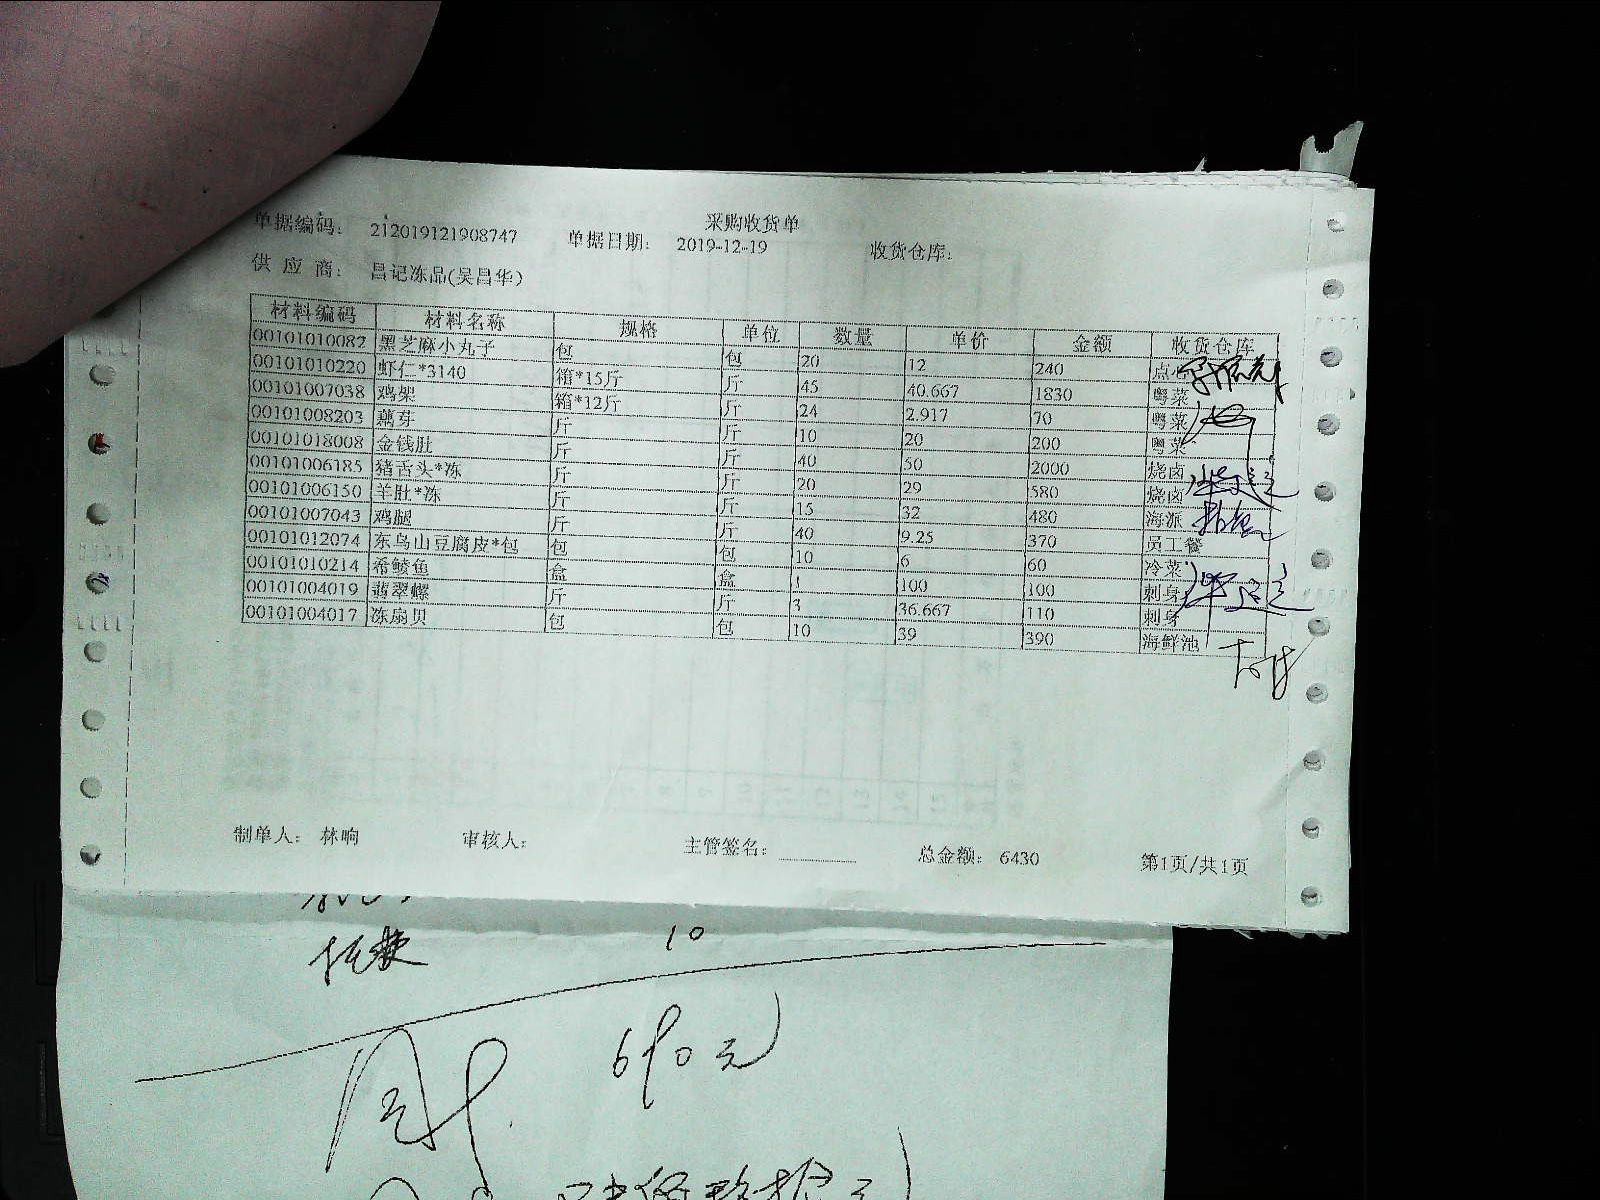 采购收货单
单据编码: 212019121908747 单据日期: 2019-12-19 收货仓库:
供应商: 昌记冻品(吴昌华)
材料编码 材料名称 规格 单位 数量 单价 金额 收货仓库
00101010082 黑芝麻小丸子 包 包 20 12 240 点
00101010220 虾仁*3140 箱*15斤 斤 45 40.667 1830 粤菜
00101007038 鸡架 箱*12斤 斤 24 2.917 70 粤菜
00101008203 藕芽 斤 斤 10 20 200 粤菜
00101018008 金钱肚 斤 斤 40 50 2000 烧卤
00101006185 猪舌头*冻 斤 斤 20 29 580 烧卤
00101006150 羊肚*冻 斤 斤 15 32 480 海派
00101007043 鸡腿 斤 斤 40 9.25 370 员工餐
00101012074 东乌山豆腐皮*包 包 包 10 6 60 冷菜
00101010214 希鲮鱼 盒 盒 1 100 100 刺身
00101004019 翡翠螺 斤 斤 3 36.667 110 刺身
00101004017 冻扇贝 包 包 10 39 390 海鲜池
制单人: 林响 审核人: 主管签名: 总金额: 6430 第1页/共1页
10
690元